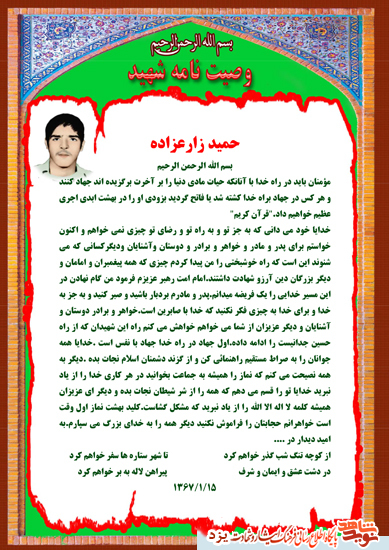 بسم الله الرحمن الرحیم
وصیت نامه شهید
حمید زارعزاده
بسم الله الرحمن الرحیم
مؤمنان باید در راه خدا با آنانکه حیات مادی دنیا را بر آخرت برگزیده اند جهاد کنند
و هر کس در جهاد براه خدا کشته شد یا فاتح گردید بزودی او را در بهشت ابدی اجری
عظیم خواهیم داد."قرآن کریم"
خدایا خود می دانی که به جز تو و به راه تو و رضای تو چیزی نمی خواهم و اکنون
خواستم برای پدر و مادر و خواهر و برادر و دوستان وآشنایان ودیگرکسانی که می
شنوند این است که راه خوشبختی را من پیدا کردم چیزی که همه پیغمبران و امامان و
دیگر بزرگان دین آرزو شهادت داشتند.امام امت رهبر عزیزم فرمود من گام نهادن در
این مسیر خدایی را یک فریضه میدانم.پدر و مادرم بردبار باشید و صبر کنید و به جز به
خدا و برای خدا به چیزی فکر نکنید که خدا با صابرین است.خواهر و برادر دوستان و
آشنایان و دیگر عزیزان از شما می خواهم خواهش می کنم راه این شهیدان که از راه
حسین جدانیست را ادامه داده.اول جهاد در راه خدا جهاد با نفس است .خدایا همه
جوانان را به صراط مستقیم راهنمائی کن و از گزند دشمنان اسلام نجات بده .دیگر به
همه نصیحت می کنم که نماز را همیشه به جماعت بخوانید در هر کاری خدا را از یاد
نبرید خدایا تو را قسم می دهم که همه را از شر شیطان نجات بده و دیگر ای عزیزان
همیشه کلمه لا اله الا الله را از یاد نبرید که مشکل گشاست.کلید بهشت نماز اول وقت
است خواهرانم حجابتان را فراموش نکنید دیگر همه را به خدای بزرگ می سپارم.به
امید دیدار در ....
از کوچه تنگ شب گذر خواهم کرد تا شهر ستاره ها سفر خواهم کرد
در دشت عشق و ایمان و شرف پیراهن لاله به بر خواهم کرد
۱۳۶۷/۱/۱۵
نوید شاهد
پایگاه اطلاع رسانی فرهنگ ایثار و شهادت یزد